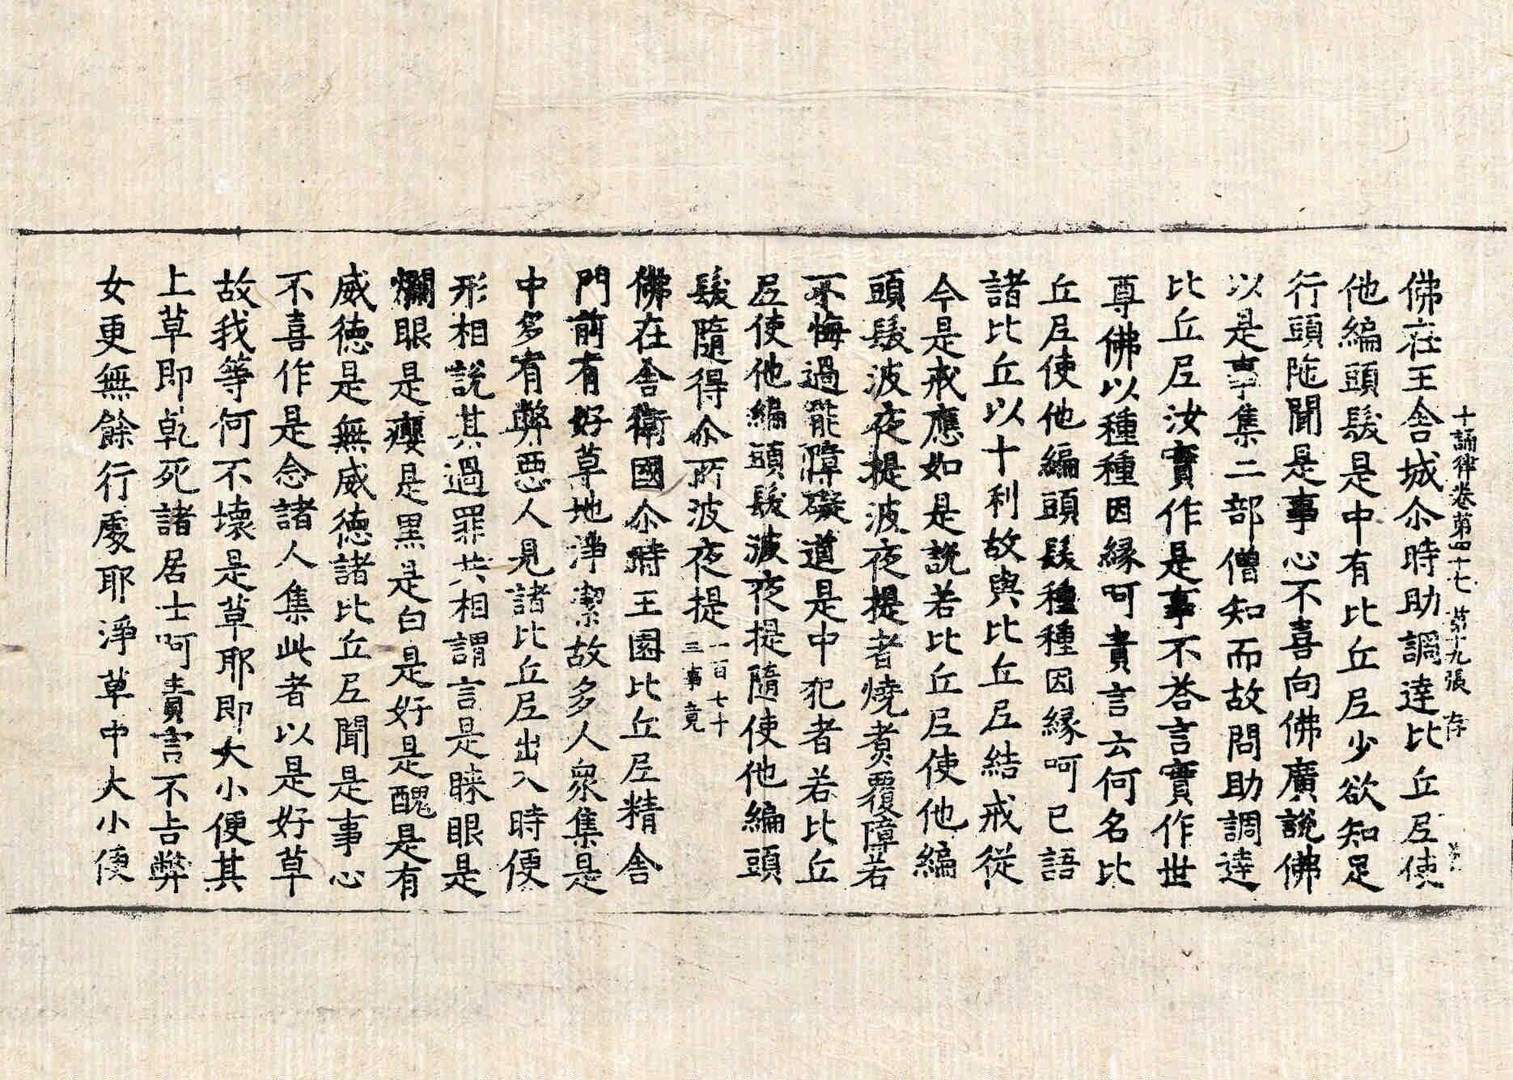 十誦律卷第四十七 第十九張 存
佛在王舍城尒時助調達比丘尼使
他編頭髮是中有比丘尼少欲知足
行頭陁聞是事心不喜向佛廣說佛
以是事集二部僧知而故問助調達
比丘尼汝實作是事不荅言實作世
尊佛以種種因緣呵責言云何名比
丘尼使他編頭髮種種因緣呵已語
諸比丘以十利故與比丘尼結戒從
今是戒應如是說若比丘尼使他編
頭髮波夜提波夜提者燒煑覆障若
不悔過能障礙道是中犯者若比丘
尼使他編頭髮波夜提隨使他編頭
髮隨得尒所波夜提一百七十三事竟
佛在舍衛國尒時王園比丘尼精舍
門前有好草地淨潔故多人衆集是
中多有弊惡人見諸比丘尼出入時便
形相說其過罪共相謂言是睞眼是
爛眼是癭是黑是白是好是醜是有
威德是無威德諸比丘尼聞是事心
不喜作是念諸人集此者以是好草
故我等何不壞是草耶即大小便其
上草即乾死諸居士呵責言不吉弊
女更無餘行處耶淨草中大小便